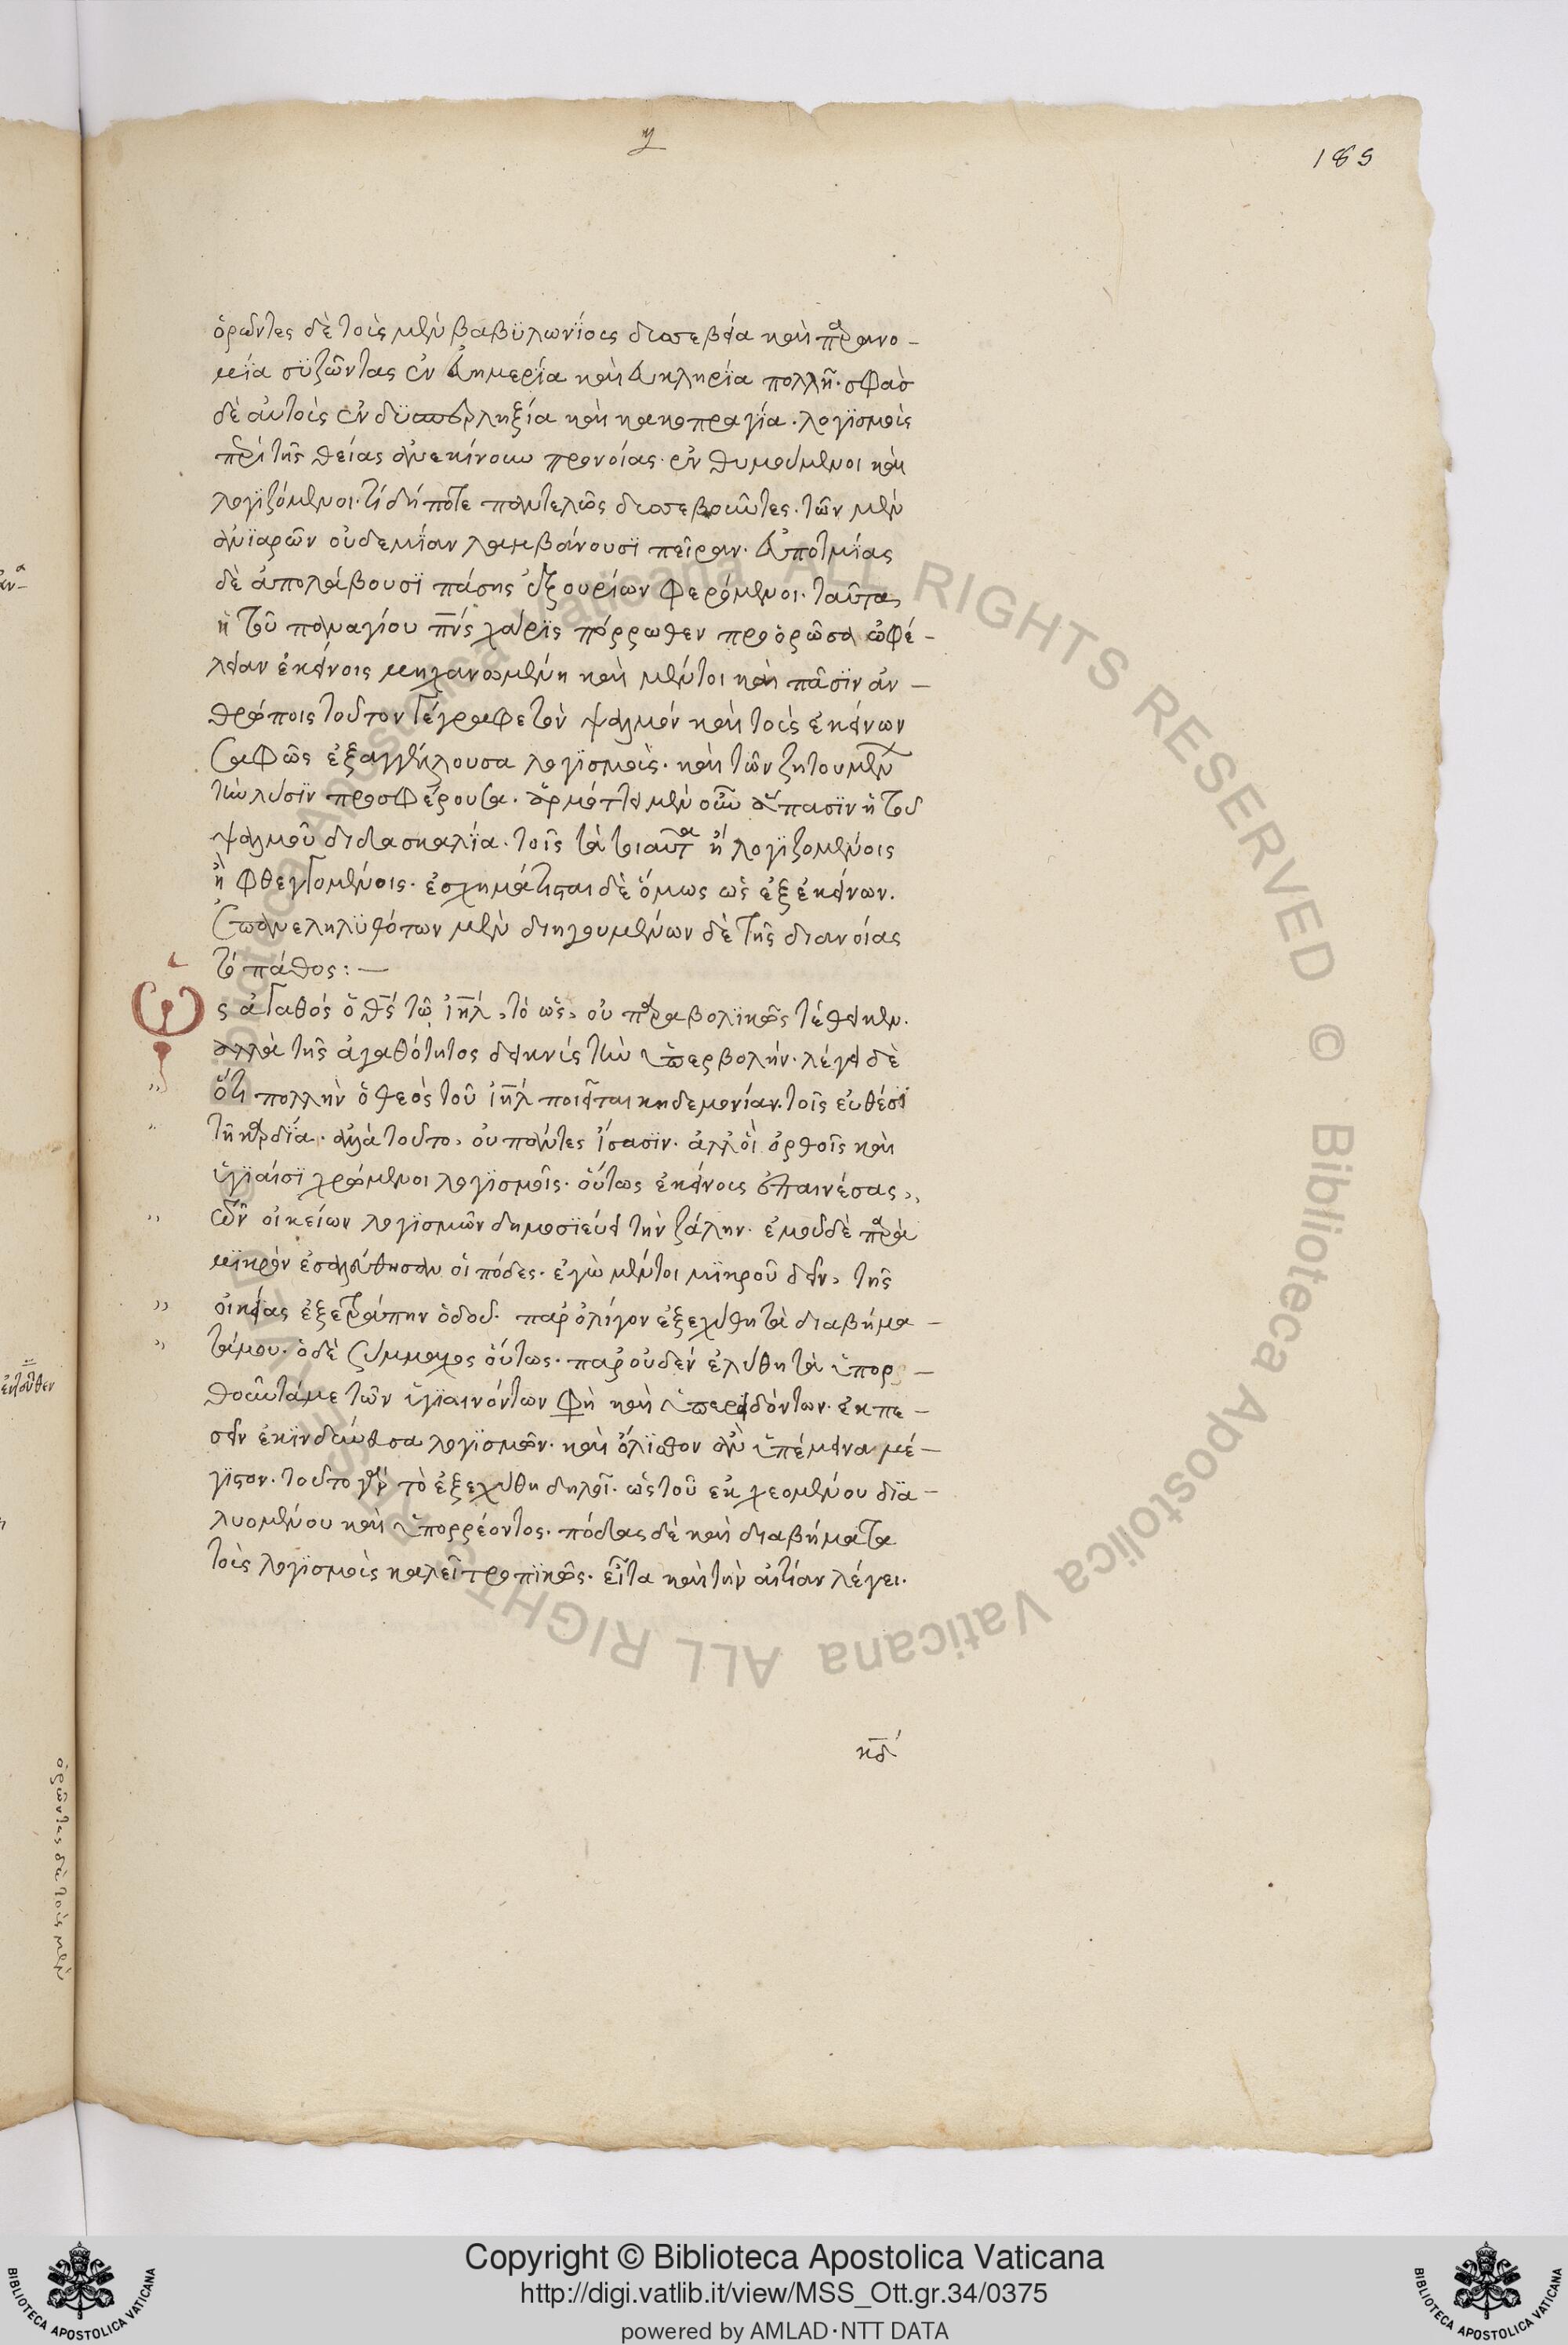 185
ὁρῶντες δὲ τοὺς μὲν βαβϋλωνίους δυσεβεία καὶ παρανο-
μία συζῶντας ἐν εὐημερία καὶ εὐκληρία πολλῆ. σφᾶσ
δὲ αὐτοὺς ἐν καὶ κακοπραγία. λογϊσμοὺς
περὶ τῆς θείας ἀνεκίνουν προνοίας. ἐνθυμούμενοι καὶ
λογϊζόμενοι. τί δήποτε παντελῶς δυσεβοῦντες. τῶν μὲν
ἀνϊαρῶν οὐδεμίαν λαμβάνουσϊ πεῖραν. εὐποτμίας
δὲ ἀπολάβουσϊ πάσης ἐξουρίων φερόμενοι. ταῦτα
ἡ τοῦ παναγίου πνς χάρϊς πόρρωθεν προορῶσα ὠφέ-
λειαν ἐκείνοις μηχανωμένη καὶ μέντοι καὶ πᾶσϊν ἀν-
θρώποις τοῦτον γέγραφε τὸν ψαλμόν καὶ τοὺς ἐκείνων
σαφῶς ἐξαγγέλλουσα λογϊσμοὺς. καὶ τῶν ζητουμένων
τὴν λύσϊν προσφέρουσα. ἁρμόττει μὲν οὖν ἅπασϊν ἡ τοῦ
ψαλμοῦ διδασκαλία. τοῖς τὰ τοιαῦτα ἢ λογϊζομένοις
ἢ φθεγγομένοις. ἐσχημάτισται δὲ ὅμως ὡς ἐξ ἐκείνων.
ἐπανεληλϋθότων μὲν διηγουμένων δὲ τῆς διανοίας
τὸ πάθος:—
Ὡς ἀγαθός ὁ θς τῶ ἰηλ, τὸ ὡς, οὐ παραβολϊκῶς τέθεικεν.
ἀλλὰ τῆς ἀγαθότητος δεικνὺς τὴν ὑπερβολήν. λέγει δὲ
ὅτι πολλὴν ὁ θεὸς τοῦ ἰηλ ποιεῖται κηδεμονίαν. τοῖς εὐθέσϊ
τῆ καρδία. ἀλλὰ τοῦτο, οὐ πάντες ἴσασϊν. ἀλλ' οἱ ὀρθοῖς καὶ
ὑγϊαίσϊ χρώμενοι λογϊσμοῖς. οὕτως ἐκείνους ἐπαινέσας,
τῶν οἰκείων λογϊσμῶν δημοσϊεύει τὴν ζάλην. ἐμοῦ δὲ παρὰ
μϊκρὸν ἐσαλεύθησαν οἱ πόδες. ἐγὼ μέντοι μϊκροῦ δεῖν, τῆς
οἰκείας ἐξετράπην ὁδοῦ. παρ' ὀλίγον ἐξεχύθη τὰ διαβήμα-
τά μου. ὁ δὲ σύμμαχος οὕτως. παρ' οὐδὲν ἐλύθη τὰ ὑπορ-
θοῦντά με τῶν ὑγϊαινόντων φη καὶ ὑπερειδόντων. ἐκπε-
σεῖν ἐκϊνδύνευσα λογϊσμῶν. καὶ ὄλϊσθον ἂν ὑπέμεινα μέ-
γϊστον. τοῦτο γὰρ τὸ ἐξεχύθη δηλοῖ. ὡς τοῦ ἐκχεομένου δϊα-
λυομένου καὶ ὑπορρέοντος. πόδας δὲ καὶ διαβήματα
τοὺς λογϊσμοὺς καλεῖ τροπϊκῶς. εἶτα καὶ τὴν αἰτίαν λέγει.
κδ
ὁρῶντες δὲ τοὺς μὲν
ἐντεῦθεν
Copyright © Biblioteca Apostolica Vaticana
http://digi.vatlib.it/view/MSS_Ott.gr.34/0375
powered by AMLAD·NTT DATA
BIBLIOTECA APOSTOLICA VATICANA
BIBLIOTECA APOSTOLICA VATICANA
© Biblioteca Apostolica Vaticana ALL RIGHTS RESERVED © Biblioteca Apostolica Vaticana ALL RIGHTS RESERVED